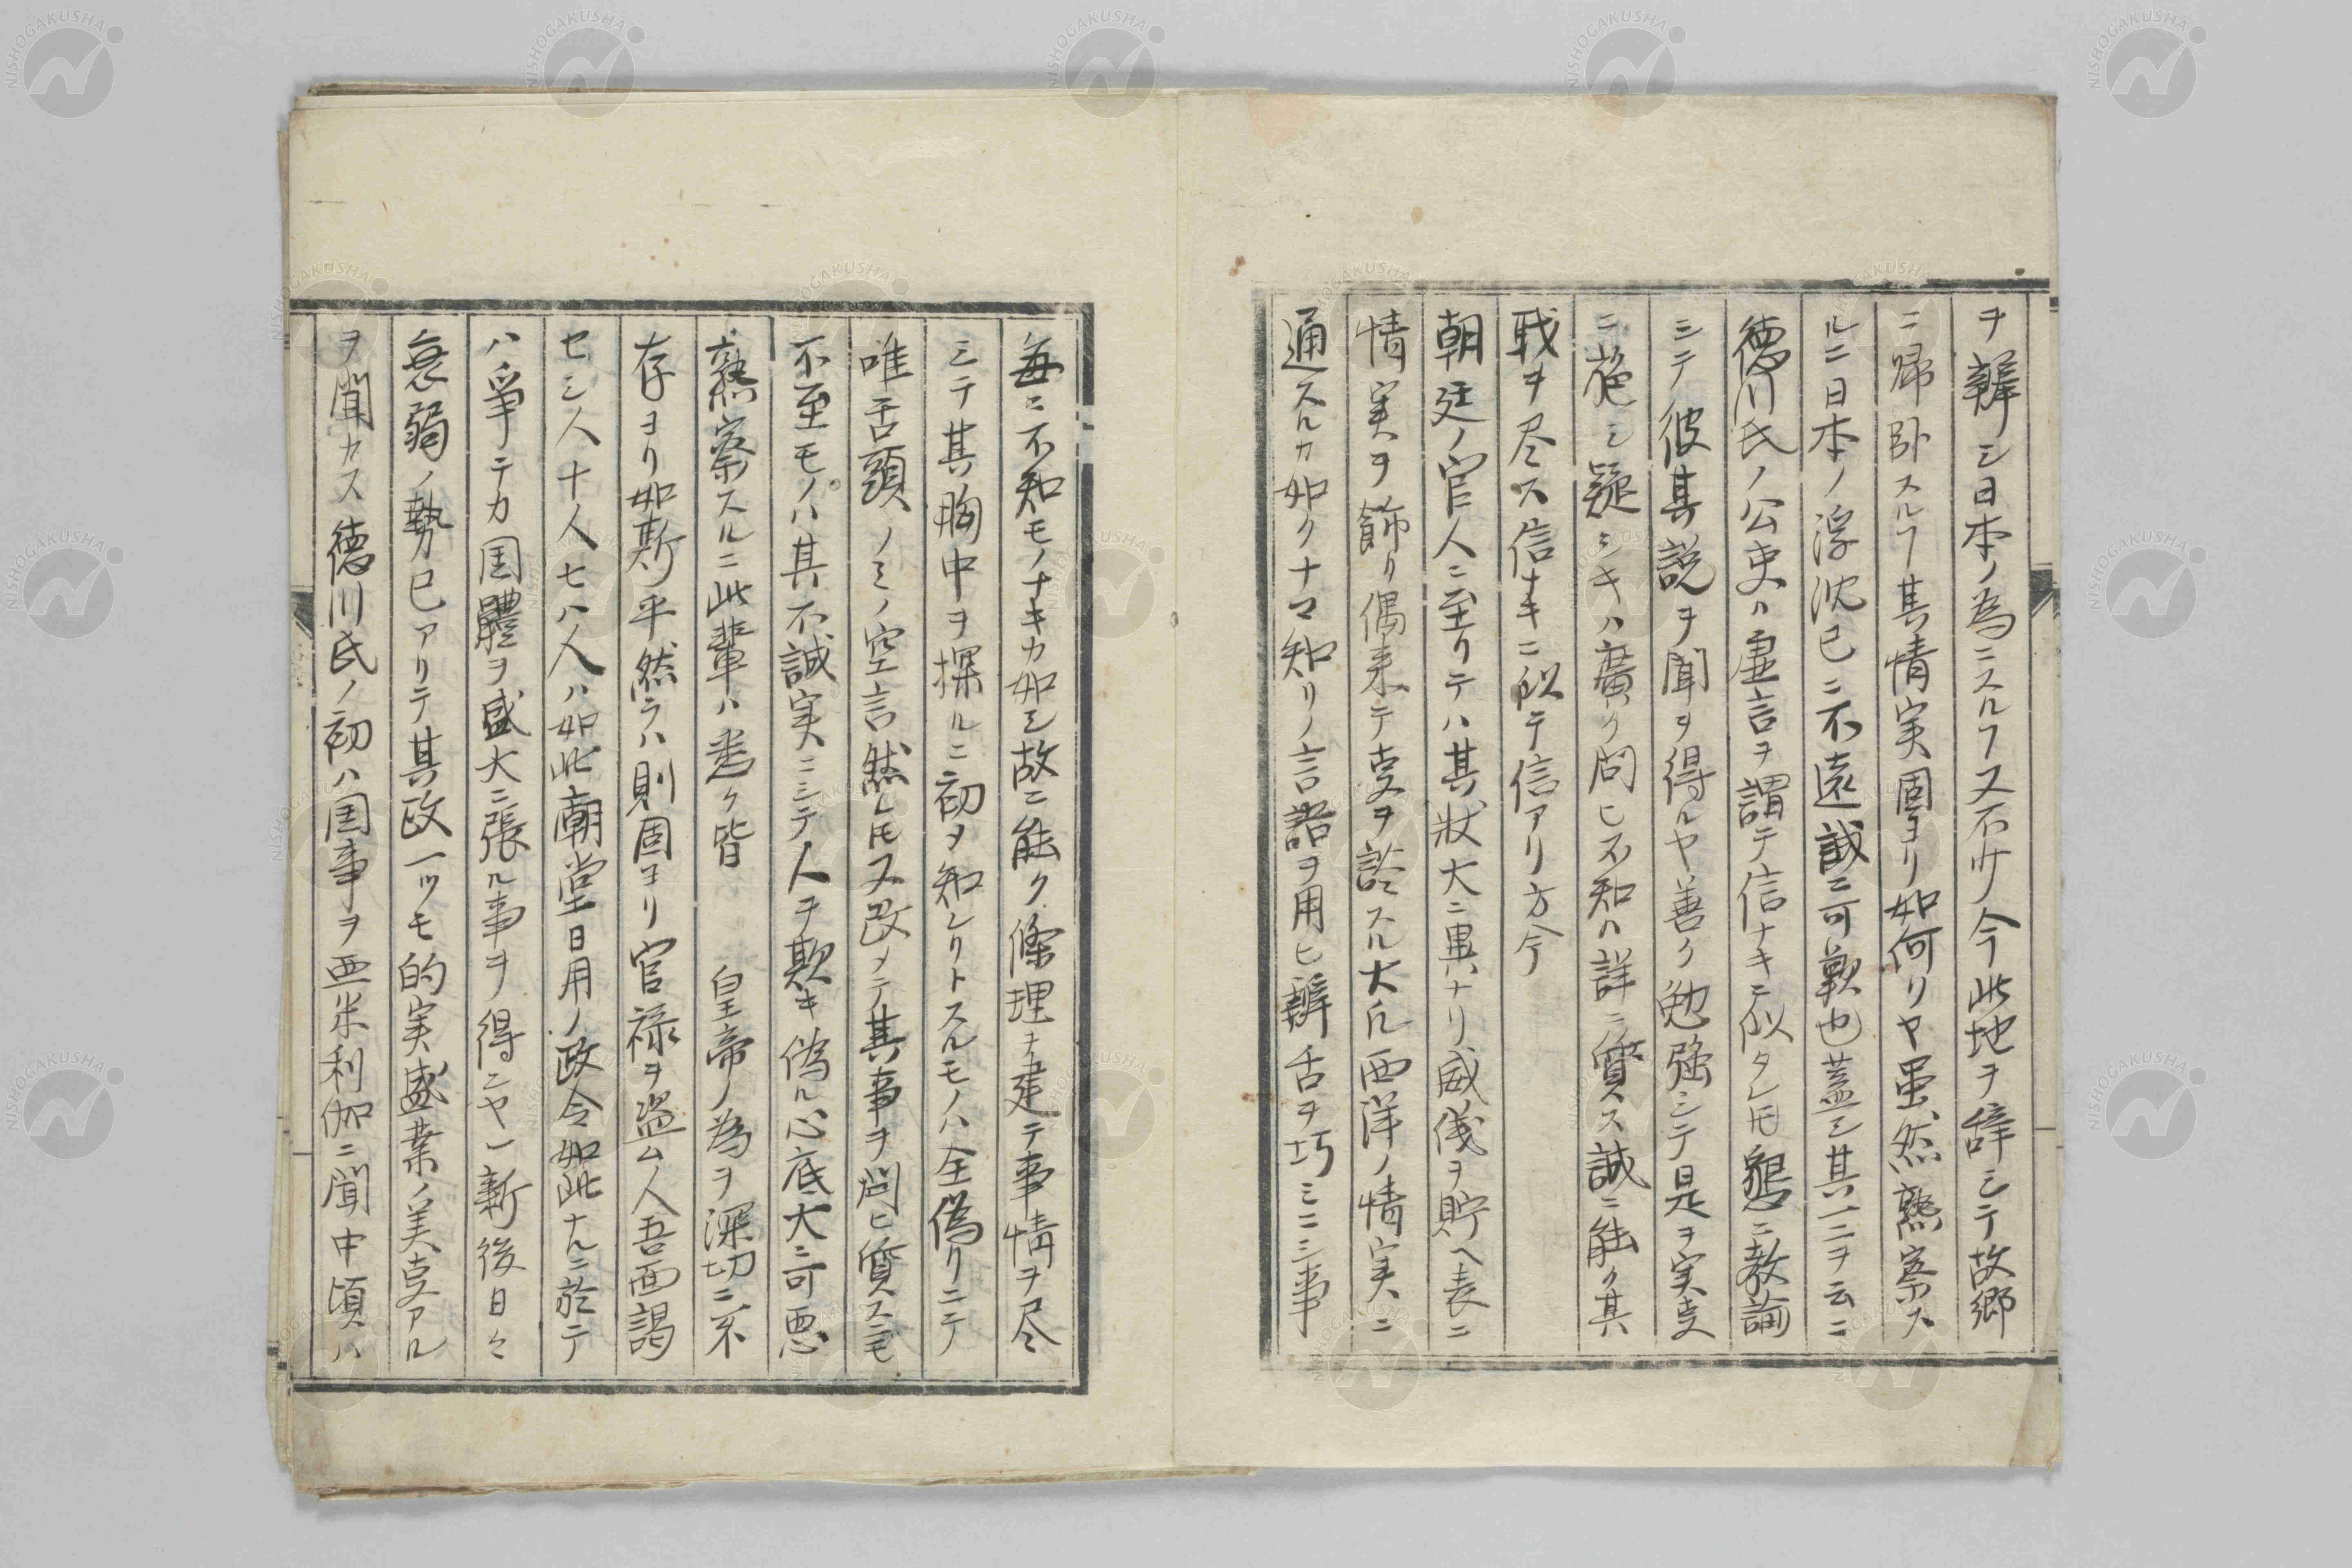 ヲ辨シ日本ノ為ニスルヿ又不少今此地ヲ辞シテ故郷
ニ帰臥スルヿ其情実固ヨリ如何リヤ虽然熟察ス
ルニ日本ノ浮沈已ニ不遠誠ニ可歎也蓋シ其一二ヲ云ニ
徳川氏ノ公吏ハ虚言ヲ謂テ信ナキニ似タレ𪜈懇ニ教諭
シテ彼其説ヲ聞ヲ得ルヤ善ク勉強シテ是ヲ実㕝
ニ施シ疑シキハ廣ク問ヒ不知ハ詳ニ質ス誠ニ能ク其
戦ヲ尽ス信ナキニ似テ信アリ方今
朝廷ノ官人ニ至リテハ其状大ニ異ナリ威儀ヲ貯ヘ表ニ
情実ヲ飾リ偶来テ㕝ヲ談スル大凡西洋ノ情実ニ
通スルカ如クナマ知リノ言語ヲ用ヒ辨舌ヲ巧ミニシ事
毎ニ不知モノナキカ如シ故ニ能ク條理ヲ建テ事情ヲ尽
シテ其胸中ヲ探ルニ初ヲ知レリトスルモノハ全偽リニテ
唯舌頭ノミノ空言然レ𪜈又改メテ其事ヲ問ヒ質スニモ
不至モノハ其不誠実ニシテ人ヲ欺キ偽ル心底大ニ可悪
熟察スルニ此輩ハ悉ク皆 皇帝ノ為ヲ深切ニ不
存ヨリ如斯平然ラハ則固ヨリ官禄ヲ盗ム人吾面謁
セシ人十人七八人ハ如此廟堂日用ノ政令如此ナルニ於テ
ハ争テカ国體ヲ盛大ニ張ル事ヲ得ンヤ一新後日々
衰弱ノ勢已アリテ其政一ツモ的実盛業ノ美㕝アル
ヲ聞カス徳川氏ノ初ハ国事ヲ亜米利伽ニ聞中頃ハ